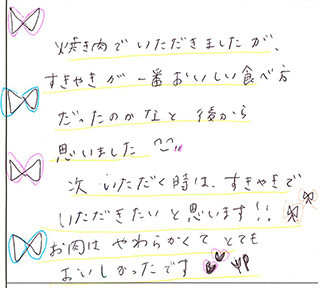 焼き肉でいただきましたが、
すきやきが一番おいしい食べ方
だったのかなと後から
思いました
次いただく時は、すきやきで
いただきたいと思います!!
お肉はやわらかくてとても
おいしかったです